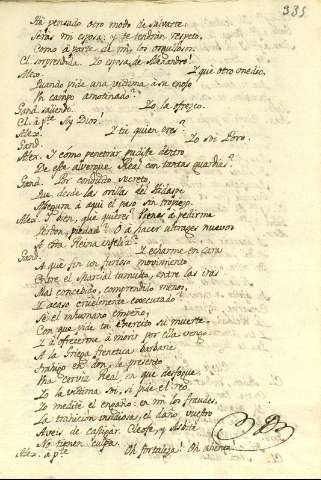 335
Ha pensado otro modo de salvarte.
Serás mi esposa: y te tendrán respeto,
Como á parte de mi, los orgullosos.
Cl. sorprendida. Yo esposa de Alexandro!
Alex. Y que otro medio,
Quando pide una victima á su enojo
Un campo amotinado?
Gand. saliendo. Yo la ofrezco.
Cl. á pte. Ay Dios!
Alex. Y tu quien eres?
Gand. Yo soi Poro.
Alex. Y como penetrar pudiste dentro
De este alvergue Real con tantas guardias?
Gand. Por conducto secreto,
Que desde la orilla del Hidaspe
Asegura á aqui el paso sin tropiezo.
Alex. Y bien, que quieres? Vienes á pedirme
Perdon, piedad? O á hacer ultrages nuevos
A esta Reina infeliz?
Gand. Y echarme en cara
A que fin un furioso movimiento
Entre el marcial tumulto, entre las iras
Mas concedido, comprendido menos,
Y acaso cruelmente executado?
Sé el inhumano empeño,
Con que pide tu Exercito su muerte.
Y á ofrecerme á morir por ella vengo.
A la Griega frenetica barbarie
Traigo en don, la presento
Una cerviz Real, en que desfogue.
Yo la victima soi, si pide el reo
Yo medité el engaño: en mi los fraudes,
La traicion insidiosa, el daño vuestro
Aveis de castigar. Cleofe, y Asbite
No tienen culpa.
Alex. á pte. Oh fortaleza! Oh aliento!